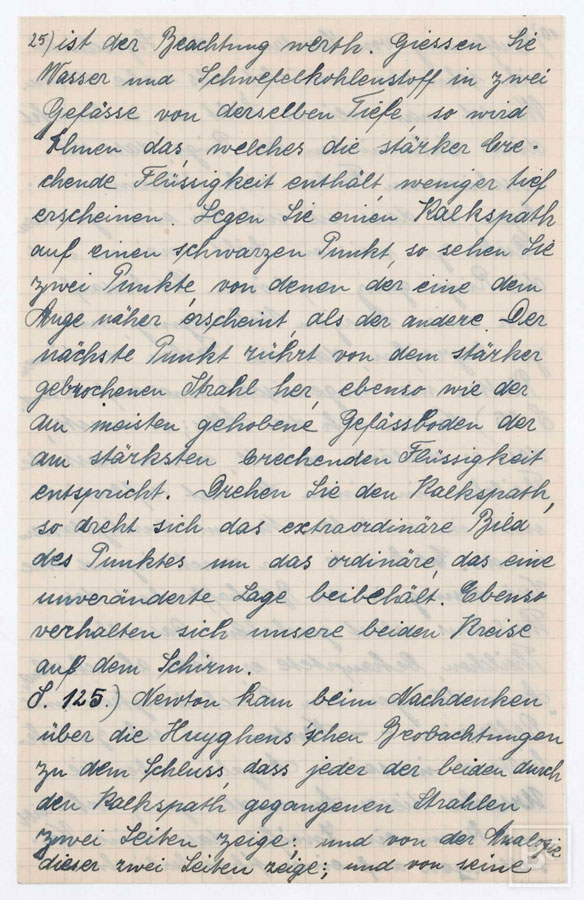 25) ist der Beachtung werth. Giessen Sie
Wasser und Schwefelkohlenstoff in zwei
Gefässe von derselben Tiefe, so wird
Ihnen das, welches die stärker bre-
chende Flüssigkeit enthält, weniger tief
erscheinen. Legen Sie einen Kalkspath
auf einen schwarzen Punkt, so sehen Sie
zwei Punkte von denen der eine dem
Auge näher erscheint, als der andere. Der
nächste Punkt rührt von dem stärker
gebrochenen Strahl her, ebenso wie der
am meisten gehobene Gefässboden der
am stärksten brechenden Flüssigkeit
entspricht. Drehen Sie den Kalkspath,
so dreht sich das extraordinäre Bild
des Punktes um das ordinäre, das eine
unveränderte Lage beibehält. Ebenso
verhalten sich unsere beiden Kreise
auf dem Schirm.
S. 125.) Newton kam beim Nachdenken
über die Huyghens'schen Beobachtungen
zu dem Schluss, dass jeder der beiden durch
den Kalkspath gegangenen Strahlen
zwei Seiten zeige; und von der Analogie
dieser zwei Seiten zeige; und von seine